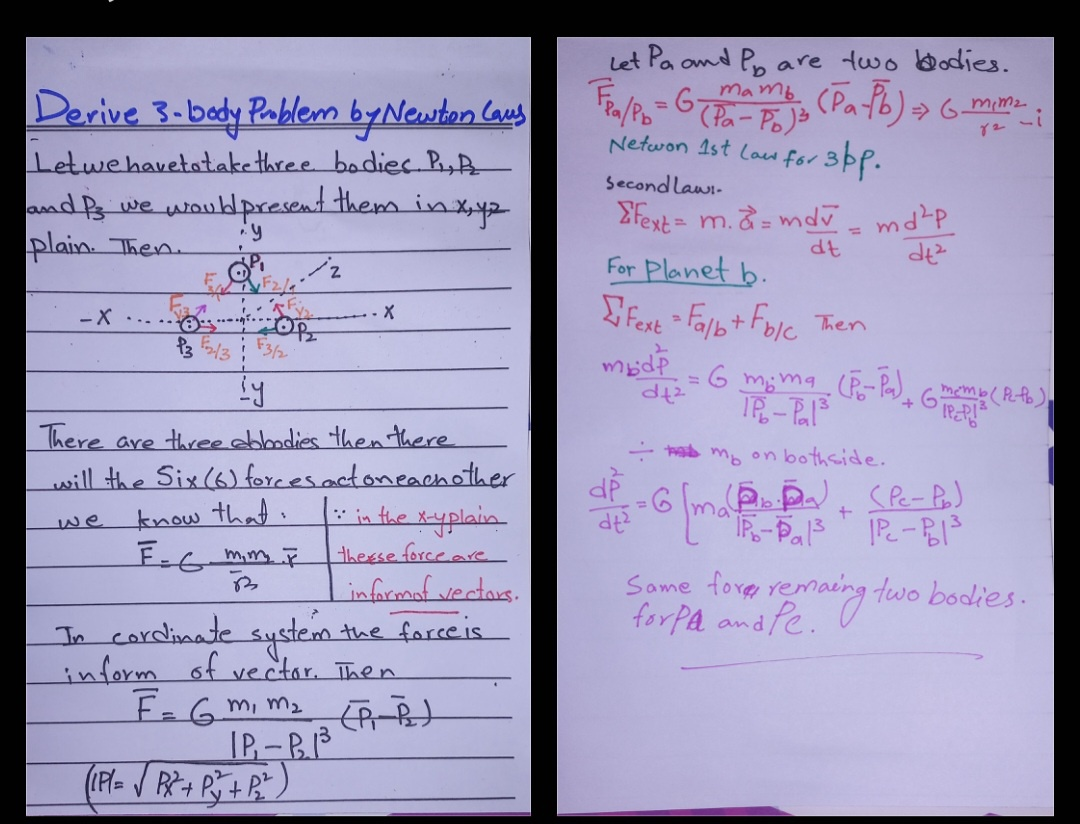 Derive 3-body Problem by Newton Laws
Let we have to take three bodies. P₁, P₂
and P₃ we would present them in x,yz
plain. Then.
y
P₁
z
F₂/₁
-X
X
P₃
F₂/₃
F₃/₂
P₂
-y
There are three bbodies then there
will the Six (6) forces act on eachother
we know that :
∵ in the x-y plain
F̅ = G m₁m₂/r̅³ . r̅
these force are
in form of vectors.
In cordinate system the force is
inform of vector. Then
F̅ = G m₁ m₂/|P₁ - P₂|³ (P̅₁ - P̅₂)
(|P| = √Px² + Py² + Pz²)
Let Pa and Pb are two bodies.
F̅Pa/Pb = G ma mb/(P̅a - P̅b)³ (P̅a - P̅b) ⇒ G m₁m₂/r² - i
Netwon 1st law for 3bp.
second law:-
ΣFext = m. a⃗ = m dv̅/dt = m d²P/dt²
For Planet b.
ΣFext = Fa/b + Fb/c Then
mb d²P/dt² = G mb.ma/|P̅b - P̅a|³ (P̅b - P̅a) + G mc mb/|Pc-Pb|³ (Pc-Pb)
÷ mb on bothside.
d²P/dt² = G [ma (P̅b - P̅a)/|P̅b - P̅a|³ + (Pc - Pb)/|Pc - Pb|³
Same for remaing two bodies.
for Pa and Pc.